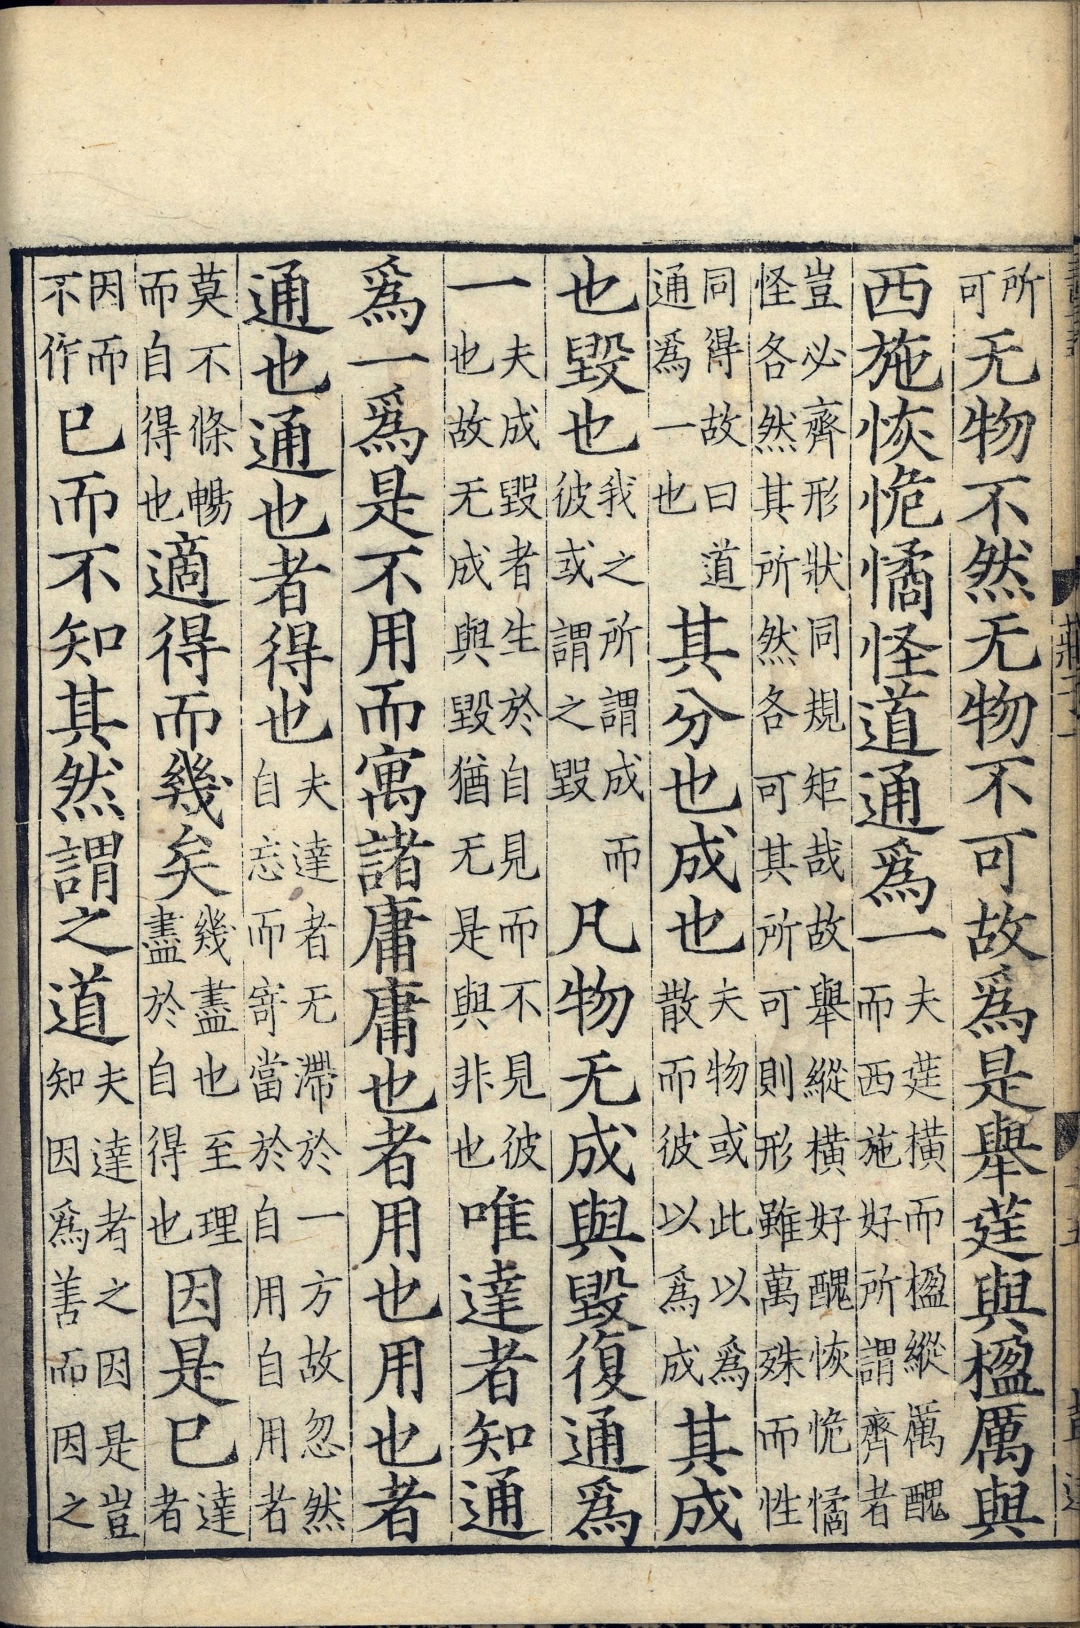 所可无物不然无物不可故爲是舉莛與楹厲與
西施恢恑憰怪道通爲一夫莛橫而楹縱厲醜而西施好所謂齊者
豈必齊形狀同規矩哉故舉縱橫好醜恢恑憰怪各然其所然各可其所可則形雖萬殊而性
同得故曰道通爲一也其分也成也夫物或此以爲散而彼以爲成其成
也毀也我之所謂成而彼或謂之毀凡物无成與毀復通爲
一夫成毀者生於自見而不見彼也故无成與毀猶无是與非也唯達者知通
爲一爲是不用而寓諸庸庸也者用也用也者
通也通也者得也夫達者无滯於一方故忽然自忘而寄當於自用自用者
莫不條暢而自得也適得而幾矣幾盡也至理盡於自得也因是已達者
因而不作已而不知其然謂之道夫達者之因是豈知因爲善而因之